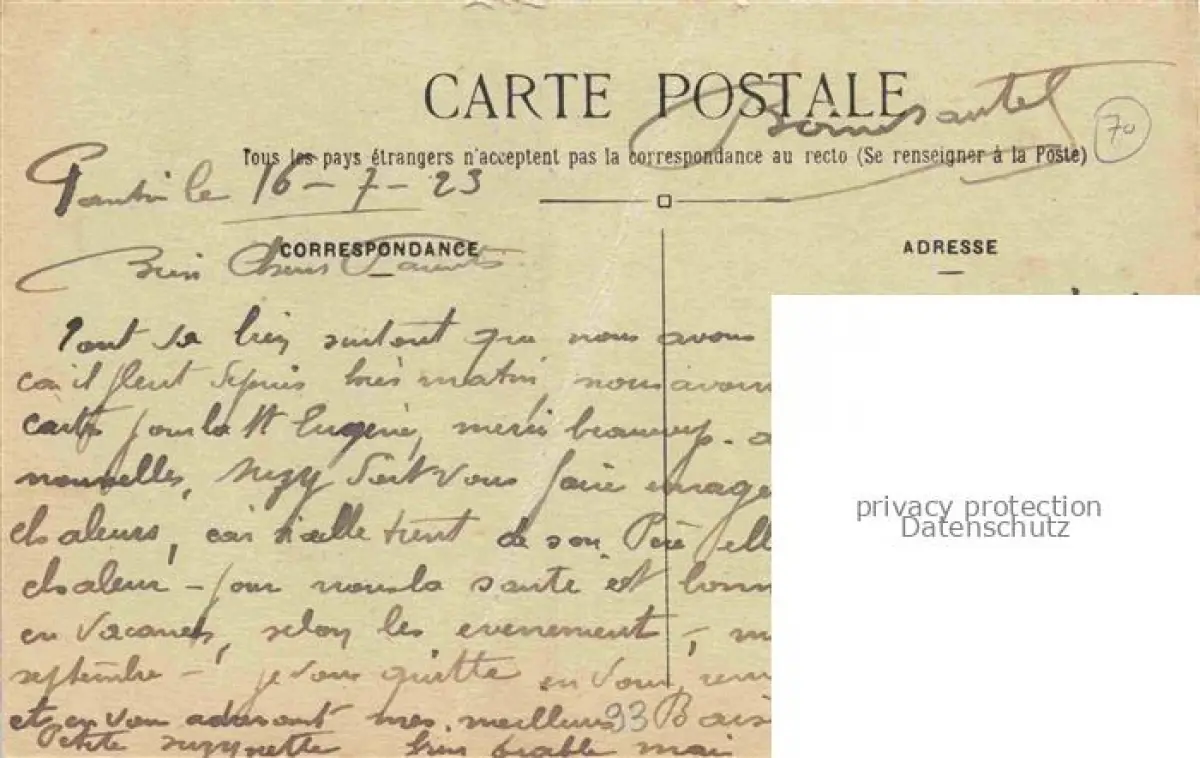 CARTE POSTALE
70
Tous les pays étrangers n'acceptent pas la correspondance au recto (Se renseigner à la Poste)
Pantin le 16-7-23
CORRESPONDANCE
ADRESSE
Bien Chers Parents
Tout va bien surtout que nous avons
car il pleut depuis matin, nous avons
carte pour la St Eugène, merci beaucoup.
nouvelles, Suzy doit vous faire enrager
chaleurs, car si elle tient de son Père elle
chaleur - pour nous la santé est bonne
en vacances, selon les evenement, -
septembre - je vous quitte en vous
et en vous adressant mes meilleurs Bais
93
Petite suzynette bien mai
privacy protection
Datenschutz